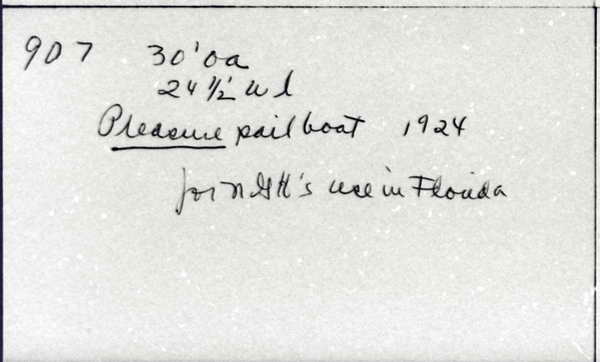 907 30' oa
24 1/2' wl
Pleasure sailboat 1924
for NGH's use in Florida